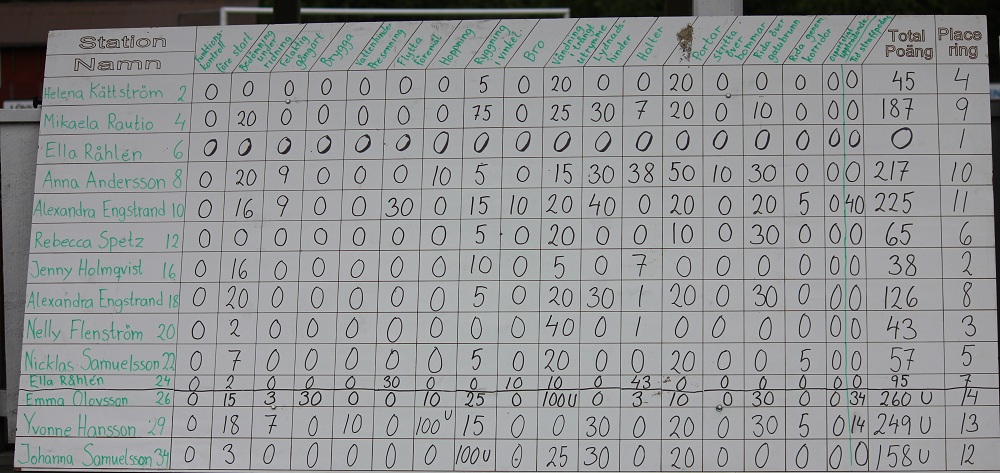 Station Total Place
Namn Poäng ring
Brygga Vattenhinder Presenning Flytta föremål Hoppning Ryggning i vinkel Bro Halter Portar
Helena Kättström 2 0 0 0 0 0 0 0 5 0 20 0 0 20 0 0 0 0 0 45 4
Mikaela Rautio 4 0 20 0 0 0 0 0 75 0 25 30 7 20 0 10 0 0 0 187 9
Ella Råhlén 6 0 0 0 0 0 0 0 0 0 0 0 0 0 0 0 0 0 0 0 1
Anna Andersson 8 0 20 9 0 0 0 10 5 0 15 30 38 50 10 30 0 0 0 217 10
Alexandra Engstrand 10 0 16 9 0 0 30 0 15 10 20 40 0 20 0 20 5 0 40 225 11
Rebecca Spetz 12 0 0 0 0 0 0 0 5 0 20 0 0 10 0 30 0 0 0 65 6
Jenny Holmqvist 16 0 16 0 0 0 0 0 10 0 5 0 7 0 0 0 0 0 0 38 2
Alexandra Engstrand 18 0 20 0 0 0 0 0 5 0 20 30 1 20 0 30 0 0 0 126 8
Nelly Flenström 20 0 2 0 0 0 0 0 0 0 40 0 1 0 0 0 0 0 0 43 3
Nicklas Samuelsson 22 0 7 0 0 0 0 0 5 0 20 0 0 20 0 0 5 0 0 57 5
Ella Råhlén 24 0 2 0 0 0 30 0 0 10 10 0 43 0 0 0 0 0 0 95 7
Emma Olovsson 26 0 15 3 30 0 0 10 25 0 100U 0 3 10 0 30 0 0 34 260 U 14
Yvonne Hansson 29 0 18 7 0 10 0 100U 15 0 0 30 0 20 0 30 5 0 14 249 U 13
Johanna Samuelsson 34 0 3 0 0 0 0 0 100U 0 25 30 0 20 0 0 0 0 0 158 U 12